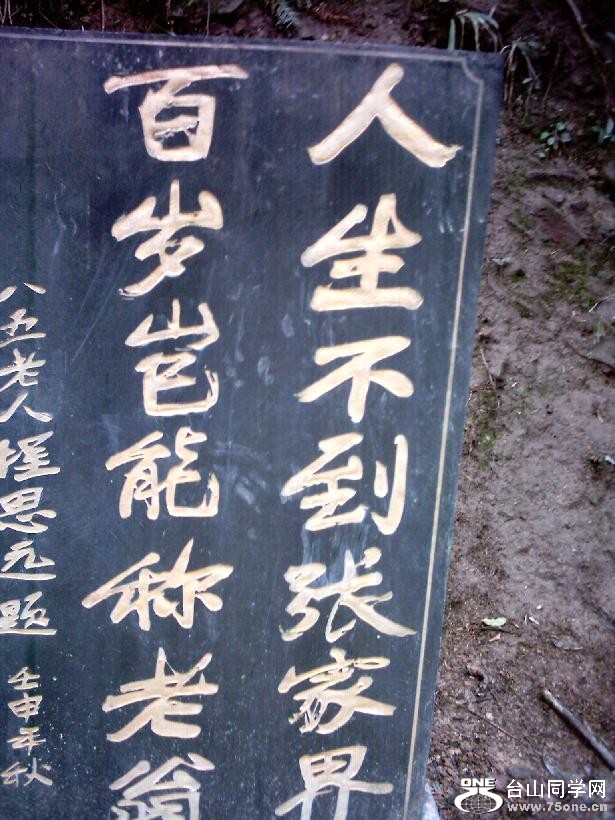 人生不到张家界
百岁岂能称老翁
八五老人程思远题 壬申年秋
ONE
台山同学网
www.75one.com